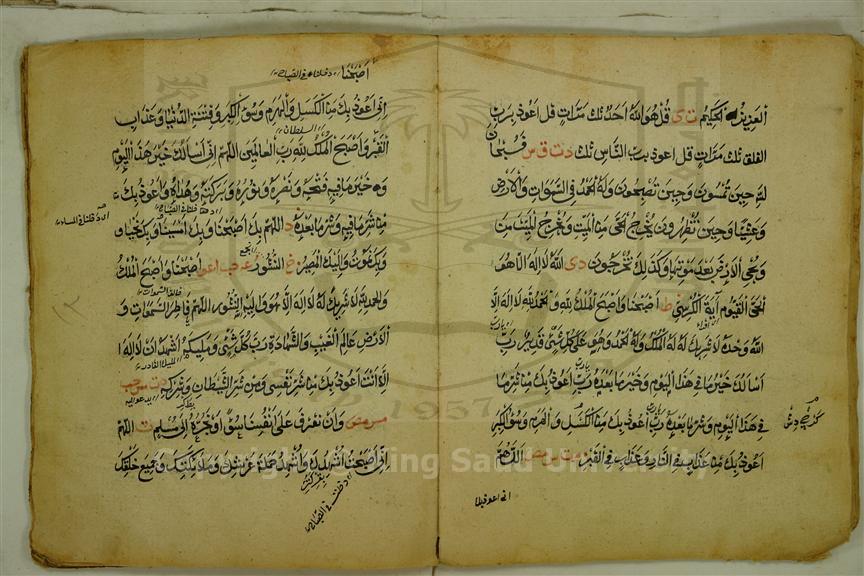 العزيز الحكيم ت ى قل هو الله احد ثلث مرات قل اعوذ برب
الفلق ثلث مرات قل اعوذ برب الناس ثلث د ت ق س فسبحان
الله حين تمسون وحين تصبحون وله الحمد في السموات والارض
وعشيا وحين تظهرون يخرج الحى من الميت ويخرج الميت من
ويحى الارض بعد موتها وكذلك تخرجون د ى الله لا اله الا هو
الحى القيوم آية الكرسى ط اصبحنا واصبح الملك لله والحمد لله لا اله الا
الله وحده لا شريك له له الملك وله الحمد وهو على كل شئ قدير رب
اسالك خير ما في هذا اليوم وخير ما بعده رب اعوذ بك من شر ما
في هذا اليوم وشر ما بعده رب اعوذ بك من الكسل والهرم وسوء الكبر
اعوذ بك من عذاب في النار وعذاب في القبر م د ت س مص اللهم
انى اعوذ بك
اصبحنا دخلنا في الصباح
انى اعوذ بك من الكسل والهرم وسوء الكبر وفتنة الدنيا وعذاب
السلطان
القبر واصبح الملك لله رب العالمين اللهم انى اسالك خير هذا اليوم
وه خير ما فيه فتحه ونصره ونوره وبركته وهداه واعوذ بك
من شر ما فيه وشر ما بعده د اللهم بك اصبحنا وبك امسينا وبك نحيا و
وبك نموت واليك المصير غ النشور عه حب ا عو اصبحنا واصبح الملك
خالق السموات
والحمد لله لا شريك له لا اله الا هو واليه النشور اللهم فاطر السموات و
الارض عالم الغيب والشهادة رب كل شئ ومليكه اشهد ان لا اله ا
المليك القادر
الا انت اعوذ بك من شر نفسى ومن شر الشيطان وشركه د ت س حب
مس مص وان نقترف على انفسنا سوءا او نجره الى مسلم ت اللهم
انى اصبحنا اشهدك واشهد حملة عرشك وملائكتك وجميع خلقك
دخلت في الصباح
Copyright © King Saud University
1957